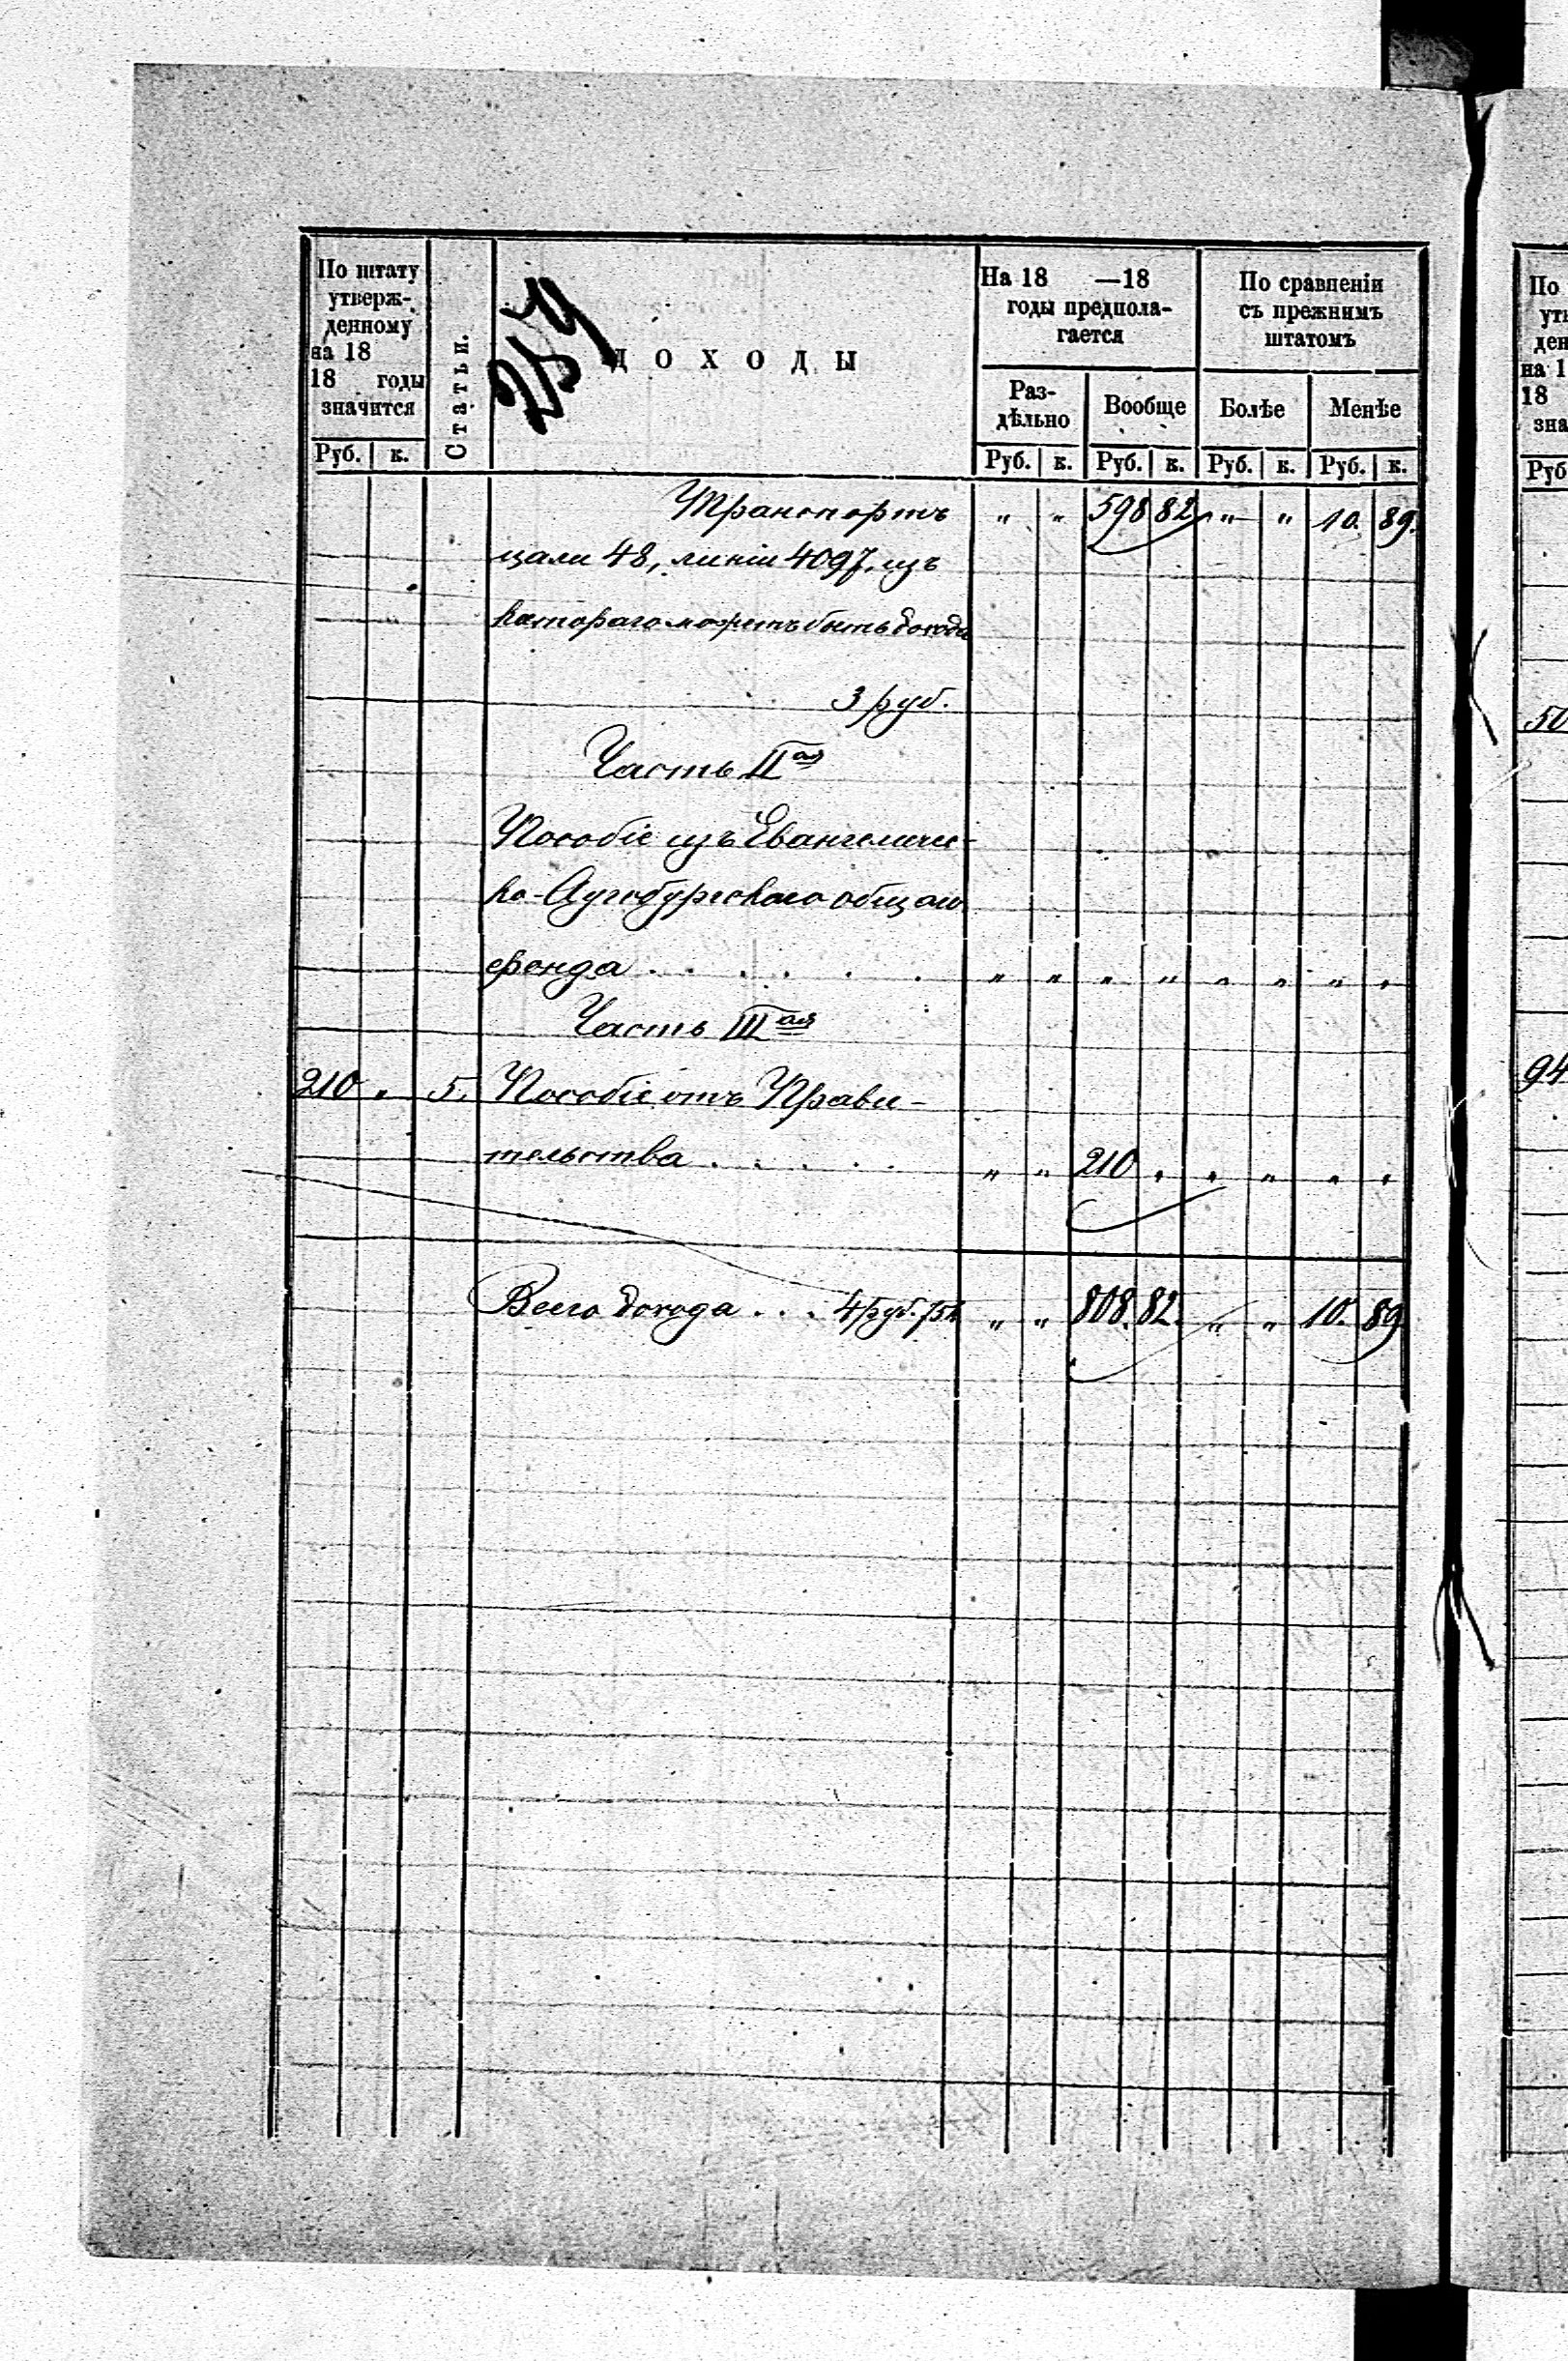 По штату
утверж-
денному
на 18
18 годы
значится
Руб. к.
Статьи.
ДОХОДЫ
На 18 —18
годы предпола-
гается
Раз-
дѣльно
Вообще
Руб. к. Руб. к.
По сравненіи
съ прежнимъ
штатомъ
Болѣе Менѣе
Руб. к. Руб. к.
Транспортъ " " 598 82 " " 10. 89.
цали 48, линіи 4097. изъ
котораго можетъ быть дохода
3 руб.
Часть II ая
Пособіе изъ Евангеличес-
ко-Аугсбургскаго общаго
фонда . . . . . " " " " " " " "
Часть III ая
210 " 5. Пособіе отъ Прави-
тельства . . . . . " " 210 " " " " "
Всего дохода . . . 4 руб. 75к " " 808. 82. " " 10. 89
По
ден
на 1
18
зна
Руб
50
94